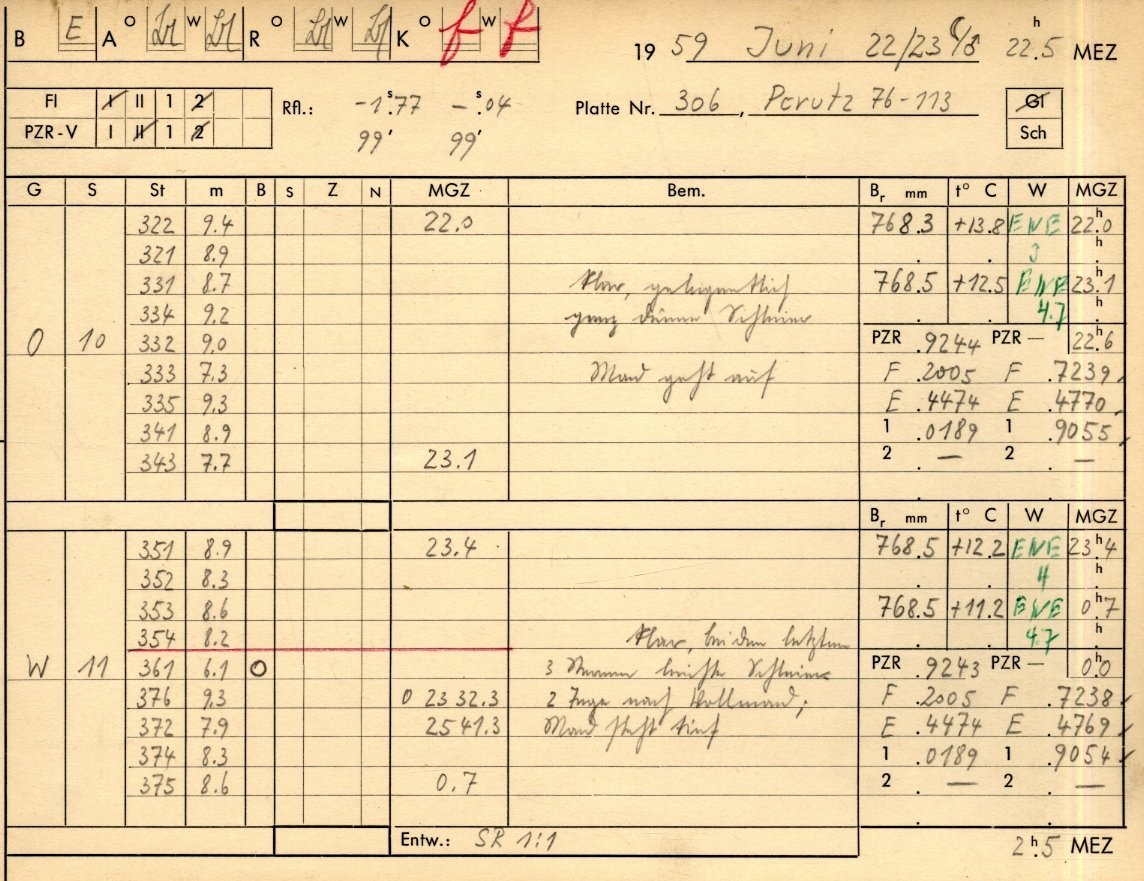 B E A O W R O W K O f W f
19 59 Juni 22/23 ☾/♂ 22.5 h MEZ
FI I II 1 2
PZR-V I II 1 2
Rfl.: -1.ˢ77 -.ˢ04
99' 99'
Platte Nr. 306, Perutz 76-113
GI
Sch
G S St m B S Z N MGZ Bem. Bᵣ mm t° C W MGZ
322 9.4 22.0 768.3 +13.8 ENE 22.ʰ0
321 8.9 3 h
331 8.7 Klar, gelegentlich 768.5 +12.5 ENE 23.ʰ1
334 9.2 ganz dünne Schleier 4.7 h
O 10 332 9.0 PZR .9244 PZR — 22.ʰ6
333 7.3 Mond geht auf F .2005 F .7239
335 9.3 E .4474 E .4770
341 8.9 1 .0189 1 .9055
343 7.7 23.1 2 — 2 —
Bᵣ mm t° C W MGZ
351 8.9 23.4 768.5 +12.2 ENE 23.ʰ4
352 8.3 4 h
353 8.6 768.5 +11.2 ENE 0.ʰ7
354 8.2 Klar, bei den letzten 4.7 h
W 11 361 6.1 O 3 Sternen leichte Schleier PZR .9243 PZR — 0.ʰ0
376 9.3 0 23 32.3 2 Tage nach Vollmond; F .2005 F .7238
372 7.9 25 41.3 Mond steht tief E .4474 E .4769
374 8.3 1 .0189 1 .9054
375 8.6 0.7 2 — 2 —
Entw.: SR 1:1
2.ʰ5 MEZ